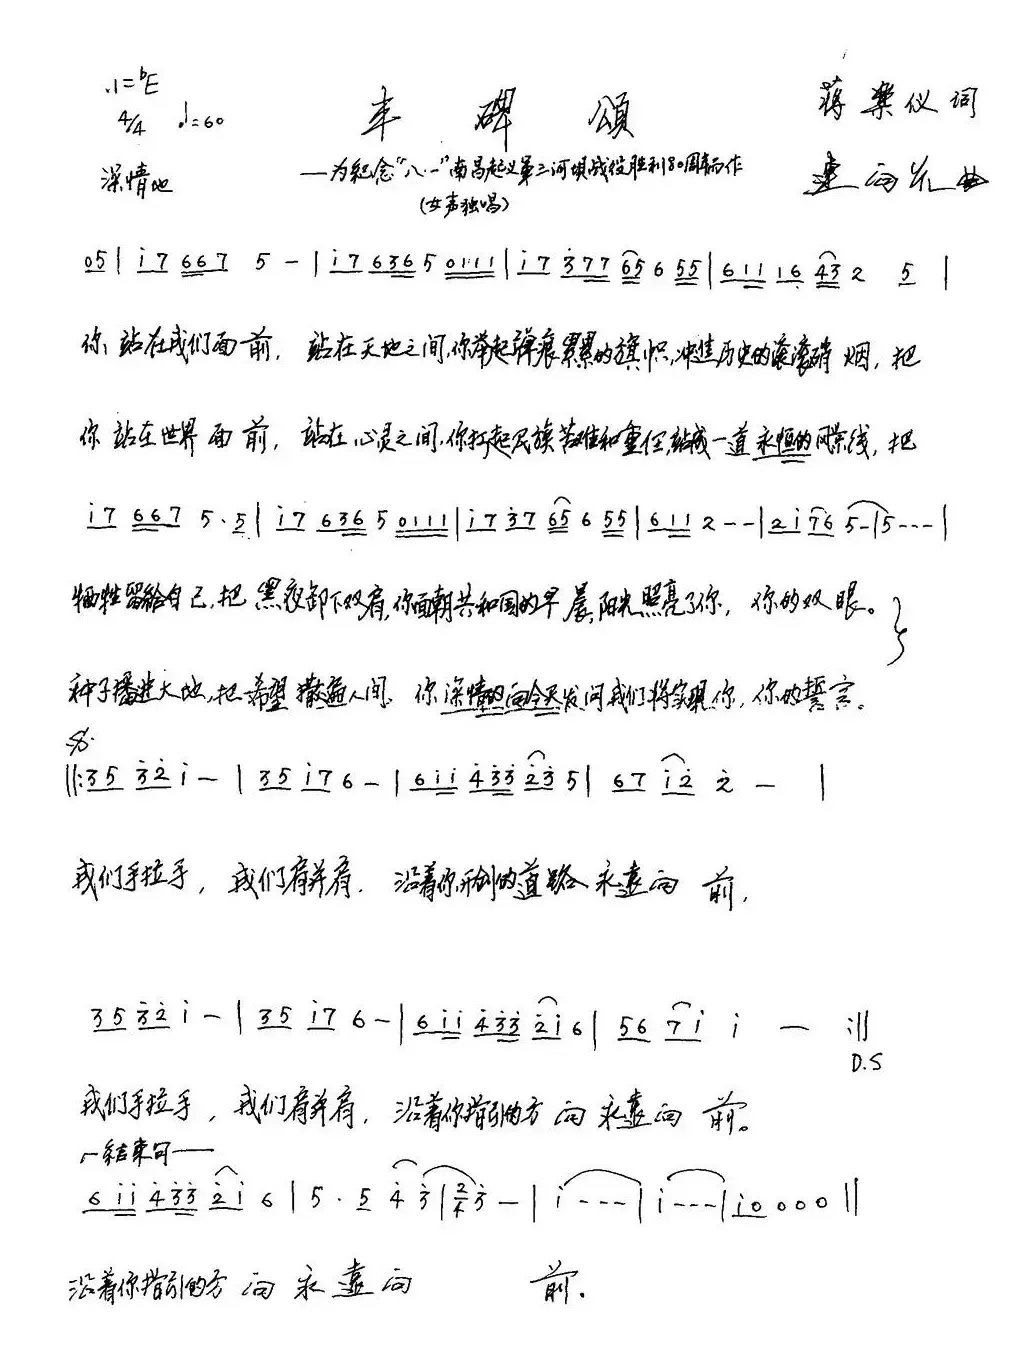 1=♭E
丰碑颂
蒋乐仪词
4/4 ♩=60
深情地
——为纪念“八·一”南昌起义第三河坝战役胜利80周年而作
(女声独唱)
05 | i 7 6 6 7 5 - | i 7 6 3 6 5 0 1 1 1 | i 7 3 7 7 6 5 6 5 5 | 6 1 1 1 6 4 3 2 5 |
你站在我们面前，站在天地之间，你举起弹痕累累的旗帜，冲往历史的滚滚硝烟，把
你站在世界面前，站在心灵之间，你扛起民族苦难和重任，站成一道永恒的风景线，把
i 7 6 6 7 5 · 5 | i 7 6 3 6 5 0 1 1 1 | i 7 3 7 6 5 6 5 5 | 6 1 1 2 - - | 2 i 7 6 5 - | 5 - - - |
牺牲留给自己，把黑夜卸下双肩，你面朝共和国的早晨，阳光照亮了你，你的双眼。
种子播进大地，把希望撒遍人间，你深情的向今天发问我们将实现你，你的誓言。
𝄋
‖: 3 5 3 2 i - | 3 5 i 7 6 - | 6 i i 4 3 3 2 3 5 | 6 7 i 2 2 - |
我们手拉手，我们肩并肩，沿着你开创的道路永远向前，
3 5 3 2 i - | 3 5 i 7 6 - | 6 i i 4 3 3 2 i 6 | 5 6 7 i i - :‖
D.S
我们手拉手，我们肩并肩，沿着你指引的方向永远向前。
结束句
6 i i 4 3 3 2 i 6 | 5 · 5 4 3 | 2/4 3 - | i - - - | i - - - | i 0 0 0 0 ‖
沿着你指引的方向永远向前.